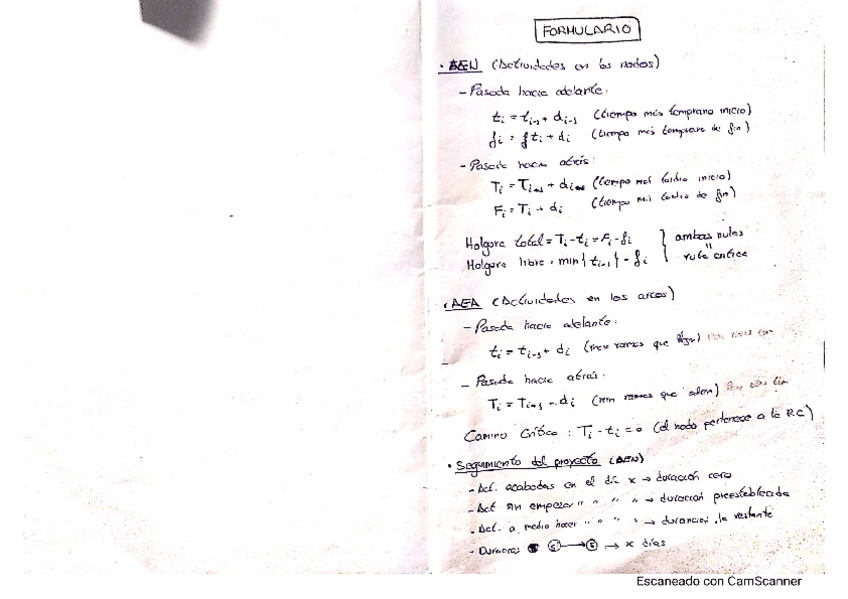 FORMULARIO
• AEN (Actividades en los nodos)
- Pasada hacia adelante:
ti = ti-1 + di-1 (tiempo más temprano inicio)
fi = ti + di (tiempo más temprano de fin)
- Pasada hacia atrás:
Ti = Ti+1 + di (tiempo más tardío inicio)
Fi = Ti + di (tiempo más tardío de fin)
Holgura total = Ti - ti = Fi - fi } ambas nulas
Holgura libre = min { ti+1 } - fi = ruta crítica
• AEA (Actividades en los arcos)
- Pasada hacia adelante:
ti = ti-1 + di (max ramas que llegan)
- Pasada hacia atrás:
Ti = Ti+1 - di (min ramas que salen)
Camino Crítico: Ti - ti = 0 (el nodo pertenece a la RC)
• Seguimiento del proyecto (AEN)
- Act. acabadas en el día x → duración cero
- Act sin empezar " " " " → duración preestablecida
- Act. a medio hacer " " " " → duración la restante
- Duracion → → x días
Escaneado con CamScanner